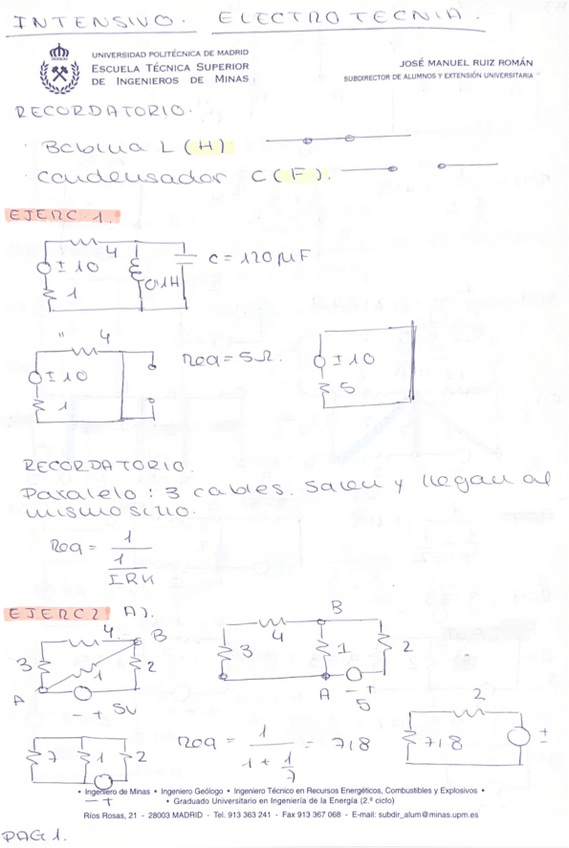 INTENSIVO. ELECTROTECNIA.
UNIVERSIDAD POLITÉCNICA DE MADRID
ESCUELA TÉCNICA SUPERIOR
DE INGENIEROS DE MINAS
JOSÉ MANUEL RUIZ ROMÁN
SUBDIRECTOR DE ALUMNOS Y EXTENSIÓN UNIVERSITARIA
RECORDATORIO.
· Bobina L (H)
· Condensador C (F).
EJERC 1.
4
± 10
1
0'1H
C = 120 μF
" 4
± 10
1
Req = 5Ω.
± 10
5
RECORDATORIO.
Paralelo: 3 cables. Salen y llegan al
mismo sitio.
Req = 1 / 1 / ΣRk
EJERC 2 A).
4 B
3 1 2
A - + 5V
B
4
3 1 2
A - + 5
7 1 2
- +
Req = 1 / 1 + 1/7 = 7/8
2
7/8 ±
• Ingeniero de Minas • Ingeniero Geólogo • Ingeniero Técnico en Recursos Energéticos, Combustibles y Explosivos •
• Graduado Universitario en Ingeniería de la Energía (2.º ciclo)
Ríos Rosas, 21 - 28003 MADRID - Tel. 913 363 241 - Fax 913 367 068 - E-mail: subdir_alum@minas.upm.es
PAG 1.